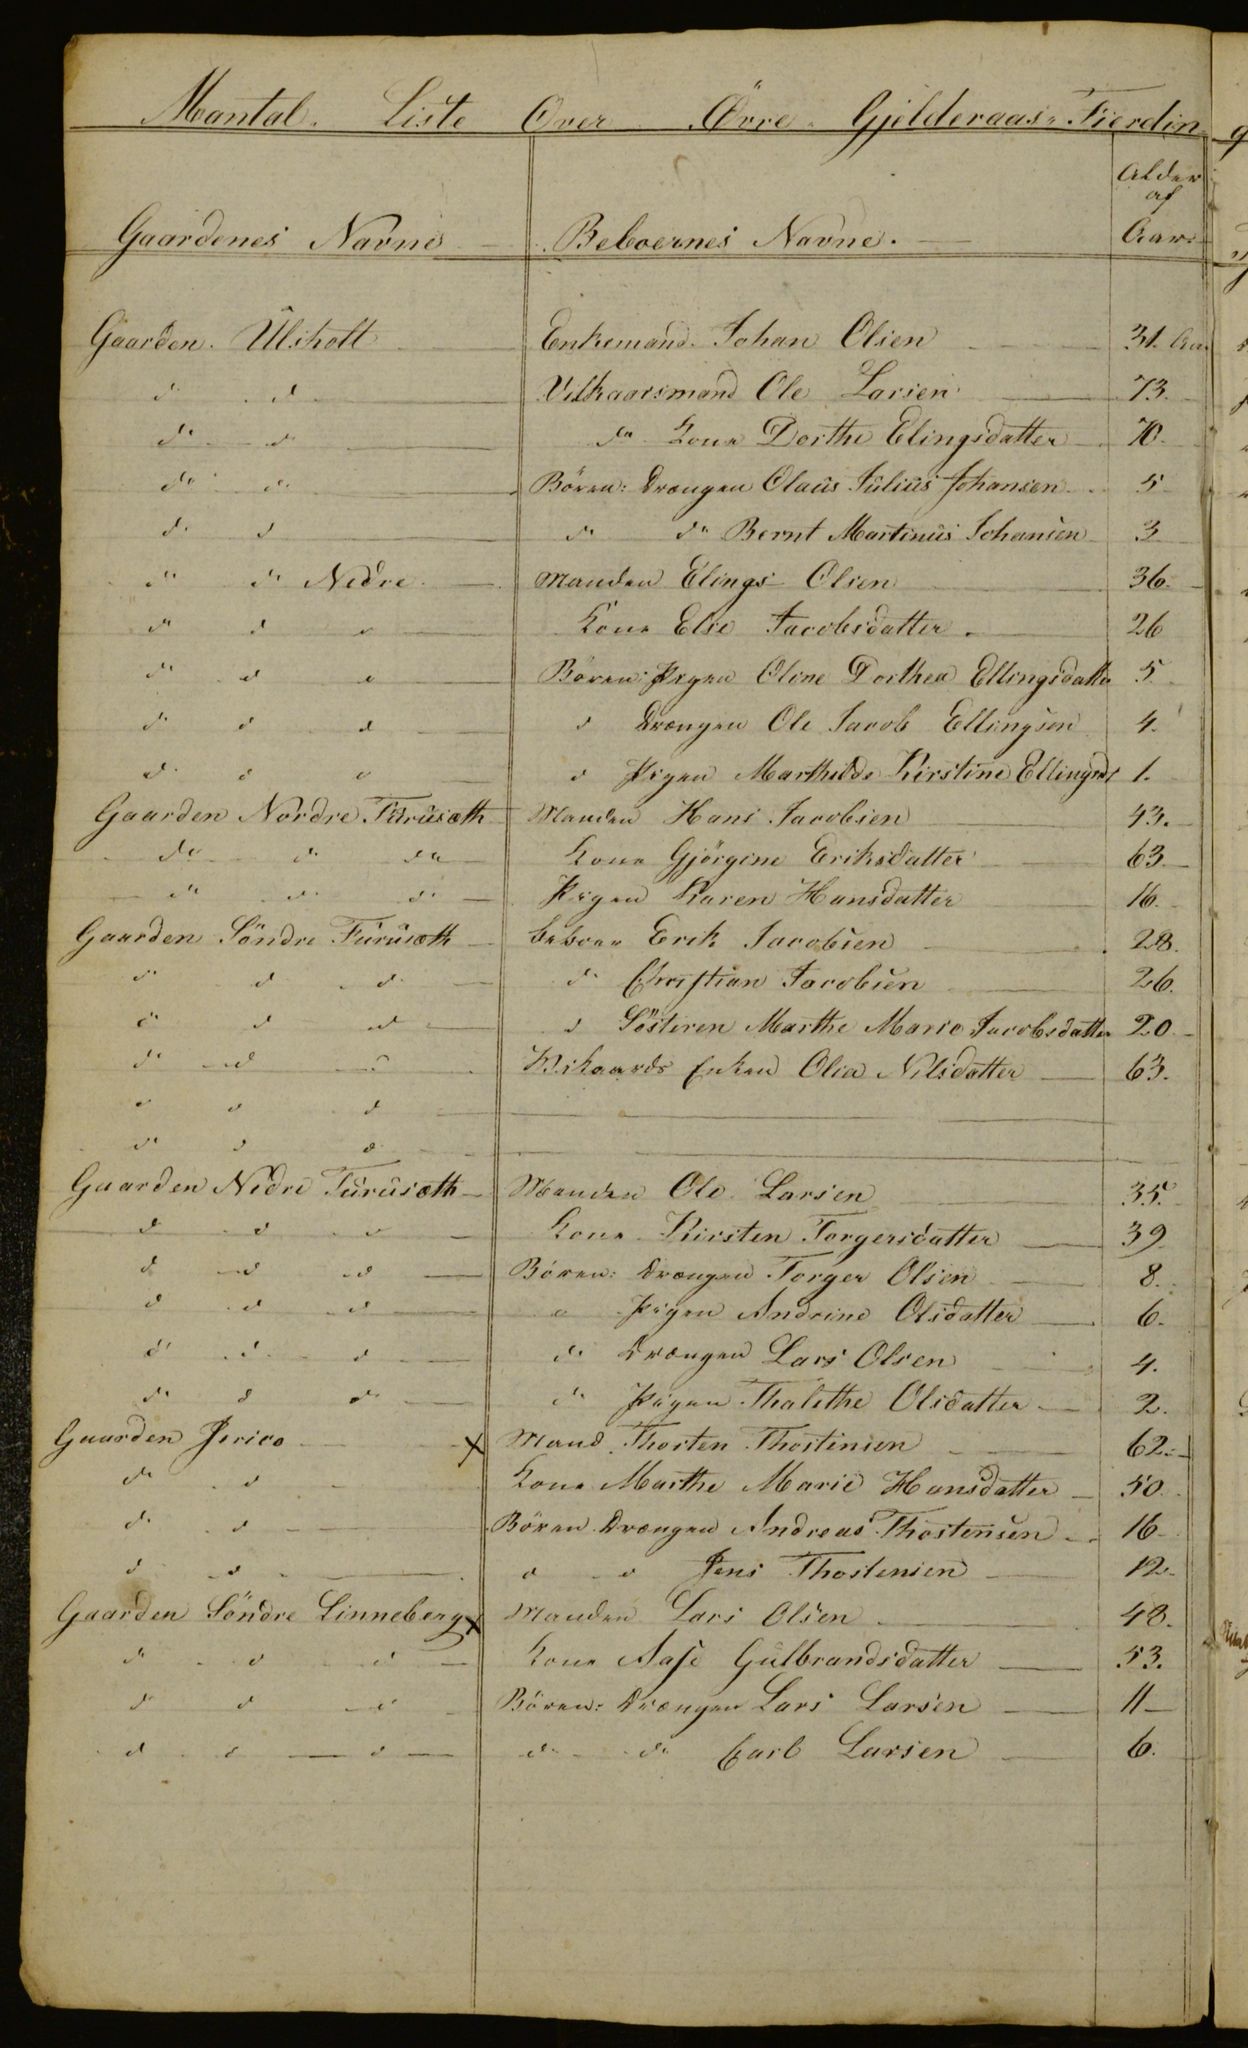 Mantal. Liste Over Øvre Gjelderaas Fierdin
Alder
af
Gaardenes Navne Beboernes Navne. Aar
Gaarden Ulsholt Enkemand Johan Olsen 31. Aar
do do Vilkaarsmand Ole Larsen 73.
do do do Kone Dorthe Elingsdatter 70.
do do Börnn: Drængen Olaüs Jülius Johansen 5
do do do do Bernt Martinüs Johansen 3
do do Nedre Manden Elings Olsen 36.
do do do Kone Else Jacobsdatter 26
do do do Börnn: Pigen Oline Dorthea Ellingsdatter 5.
do do do do Drængen Ole Jacob Ellingsen 4.
do do do do Pigen Marthilde Kirstine Ellingsdr 1.
Gaarden Nordre Fürüsæth Manden Hans Jacobsen 43.
do do do Kone Gjörgine Eriksdatter 63
do do do Pigen Karen Hansdatter 16.
Gaarden Söndre Fürüsæth beboer Erik Jacobsen 28.
do do do do Christian Jacobsen 26.
do do do do Sösteren Marthe Marie Jacobsdatter 20
do do do Enken Olia Nilsdatter 63.
do do do
do do do
Gaarden Nedre Fürüsæth Manden Ole Larsen 35.
do do do Kone Kirsten Torgersdatter 39
do do do Börnn: Drængen Torger Olsen 8.
do do do do Pigen Andrine Olsdatter 6.
do do do do Drængen Lars Olsen 4.
do do do do Pigen Thalethe Olsdatter 2.
Gaarden Jerico x Mand Thosten Thostensen 62.
do do Kone Marthe Marie Hansdatter 50.
do do Börnn Drængen Andreas Thostensen 16
do do do do Jens Thostensen 12.
Gaarden Söndre Linneberg x Manden Lars Olsen 48.
do do do Kone Aase Gülbrandsdatter 53.
do do do Börnn: Drængen Lars Larsen 11
do do do do do Carl Larsen 6.